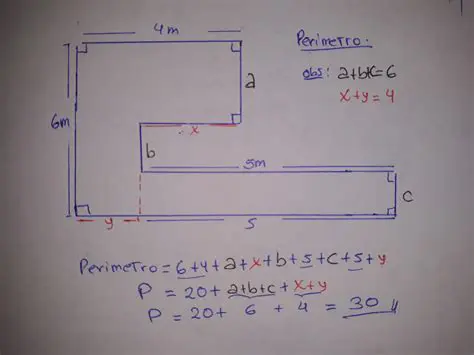 4m
Perimetro:
obs: a+b+c=6
x+y=4
6m
a
x
b
5m
c
y
5
Perimetro = 6+4+a+x+b+5+c+5+y
P = 20+a+b+c+x+y
P = 20+ 6 + 4 = 30